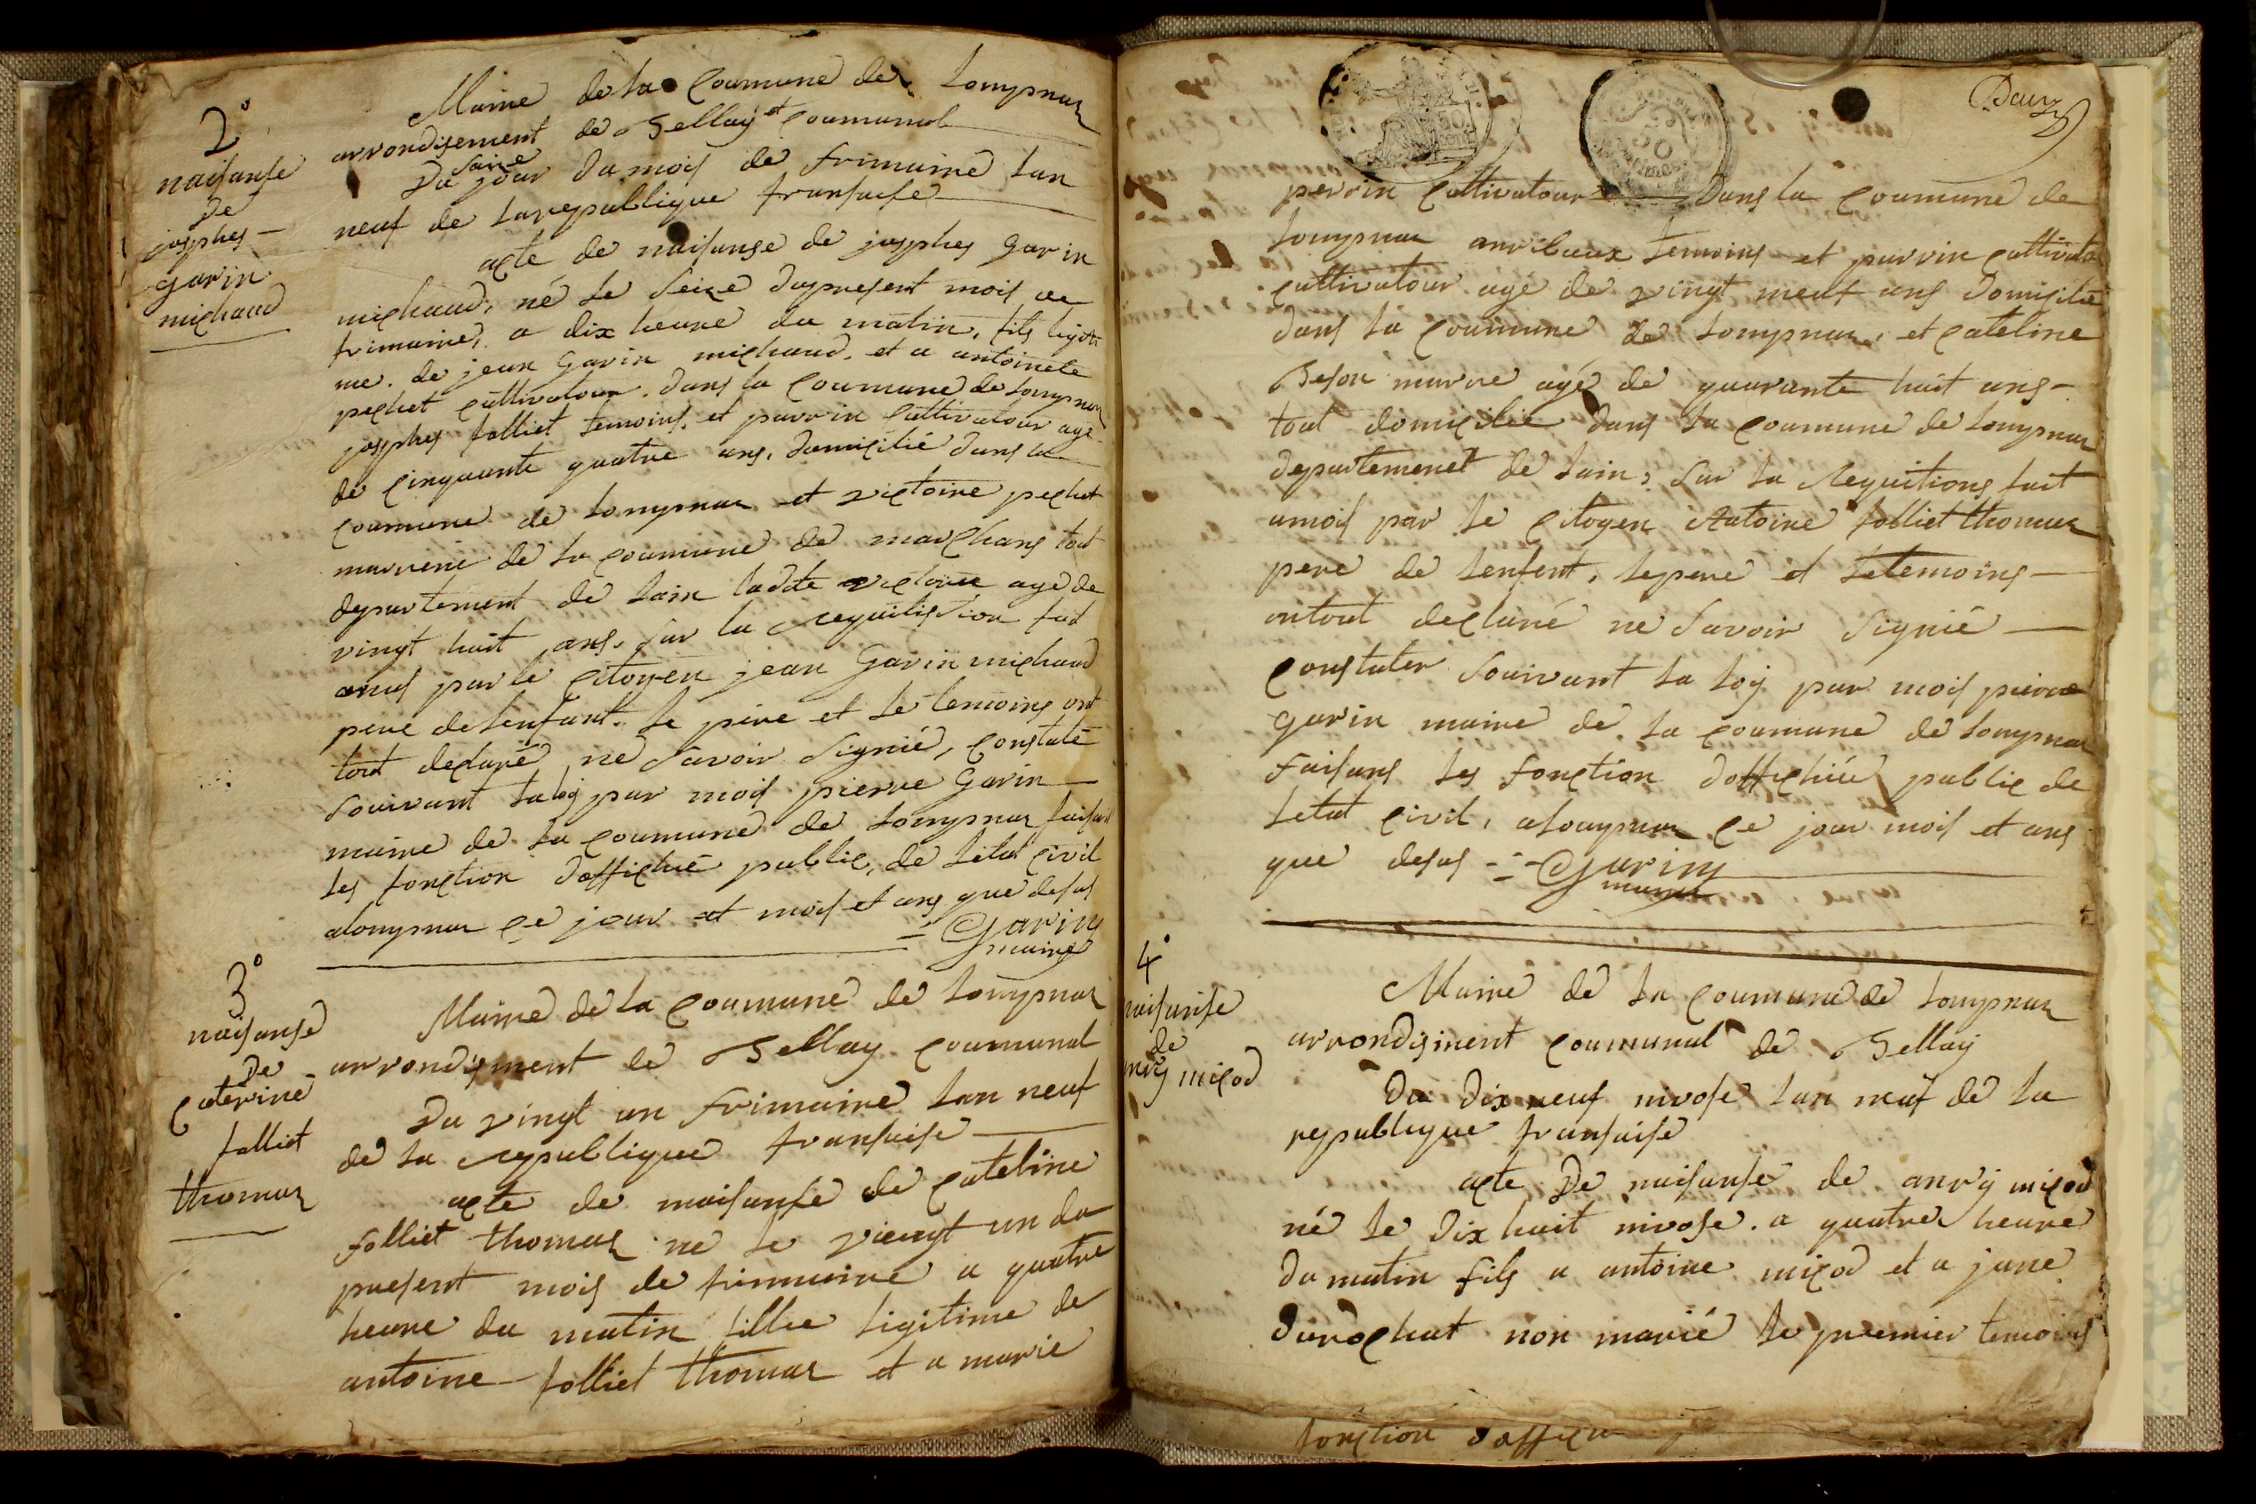 2°
naisanse
de
josphes
garin
michaud
Mairie de la Coumune de Lompnas
arrondisement de Bellay et Coumunal
Du saize jour du mois de frimaire lan
neuf de la republique fransaise
acte de naisanse de josphes Garin
michaud, né le seize du present mois de
frimaire, a dix heure du matin, fils legiti
me. de jean Garin michaud. et a antoinete
pechet cultivatour. dans la Coumune de lompnas
josphes folliet temoins. et parrin cultivatour age
de cinquante quatre ans. domicilié dans la
coumune de lompnas et victoire pechet
marrene de la coumune de marchans tout
departement de lain ladite victoire age de
vingt huit ans. sur la requitision fait
amois par le citoyen jean Garin michaud
pere de lenfant. le père et le temoins ont
tout declaré ne savoir signié, constaté
souivant laloi par mois pierre Garin
maire de la coumune de lompnas faisant
les fonction doffichié public, de letat civil
alompnas ce jour et mois et ans que desus
Garin
maire
3°
naisanse
De
caterine
folliet
thomas
Mairie de la Coumune de lompnas
arrondisment de Bellay coumunal
Du vingt un frimaire lan neuf
de la republique fransaise
acte de naisanse de cateline
folliet thomas né le viengt un du
present mois de frimaire a quatre
heure du matin fillie ligitime de
antoine folliet thomas et a marie
perrin cultivatour dans la coumune de
lompnas temoins et parrin cultivato
cultivatour agé de vingt neuf ans domicilié
dans la coumune de lompnas. et cateline
Beson marne agé de quarante huit ans
tout domicilié dans la coumune de lompnas
departemenet de lain, sur la requitions fait
amois par le citoyen Antoine folliet thomas
pere de lenfent, lepere et letemoins
ontout declaré ne savoir signié
constater souivant la loy par mois pierre
garin maire de la coumune de lompnas
faisans les fonction dofficheié public de
letat civil, alompnas ce jour mois et ans
que desus Garin
maire
4°
naisanse
de
anry micod
Mairie de la coumune de lompnas
arrondisment coumunal de Bellay
Du dix neuf nivose lan neuf de la
republique fransaise
acte De naisanse de anry micod
né le dix huit nivose. a quatre heure
du matin fils a antoine micod et a jane
durochat non marié le premier temoins
fonction dofficie